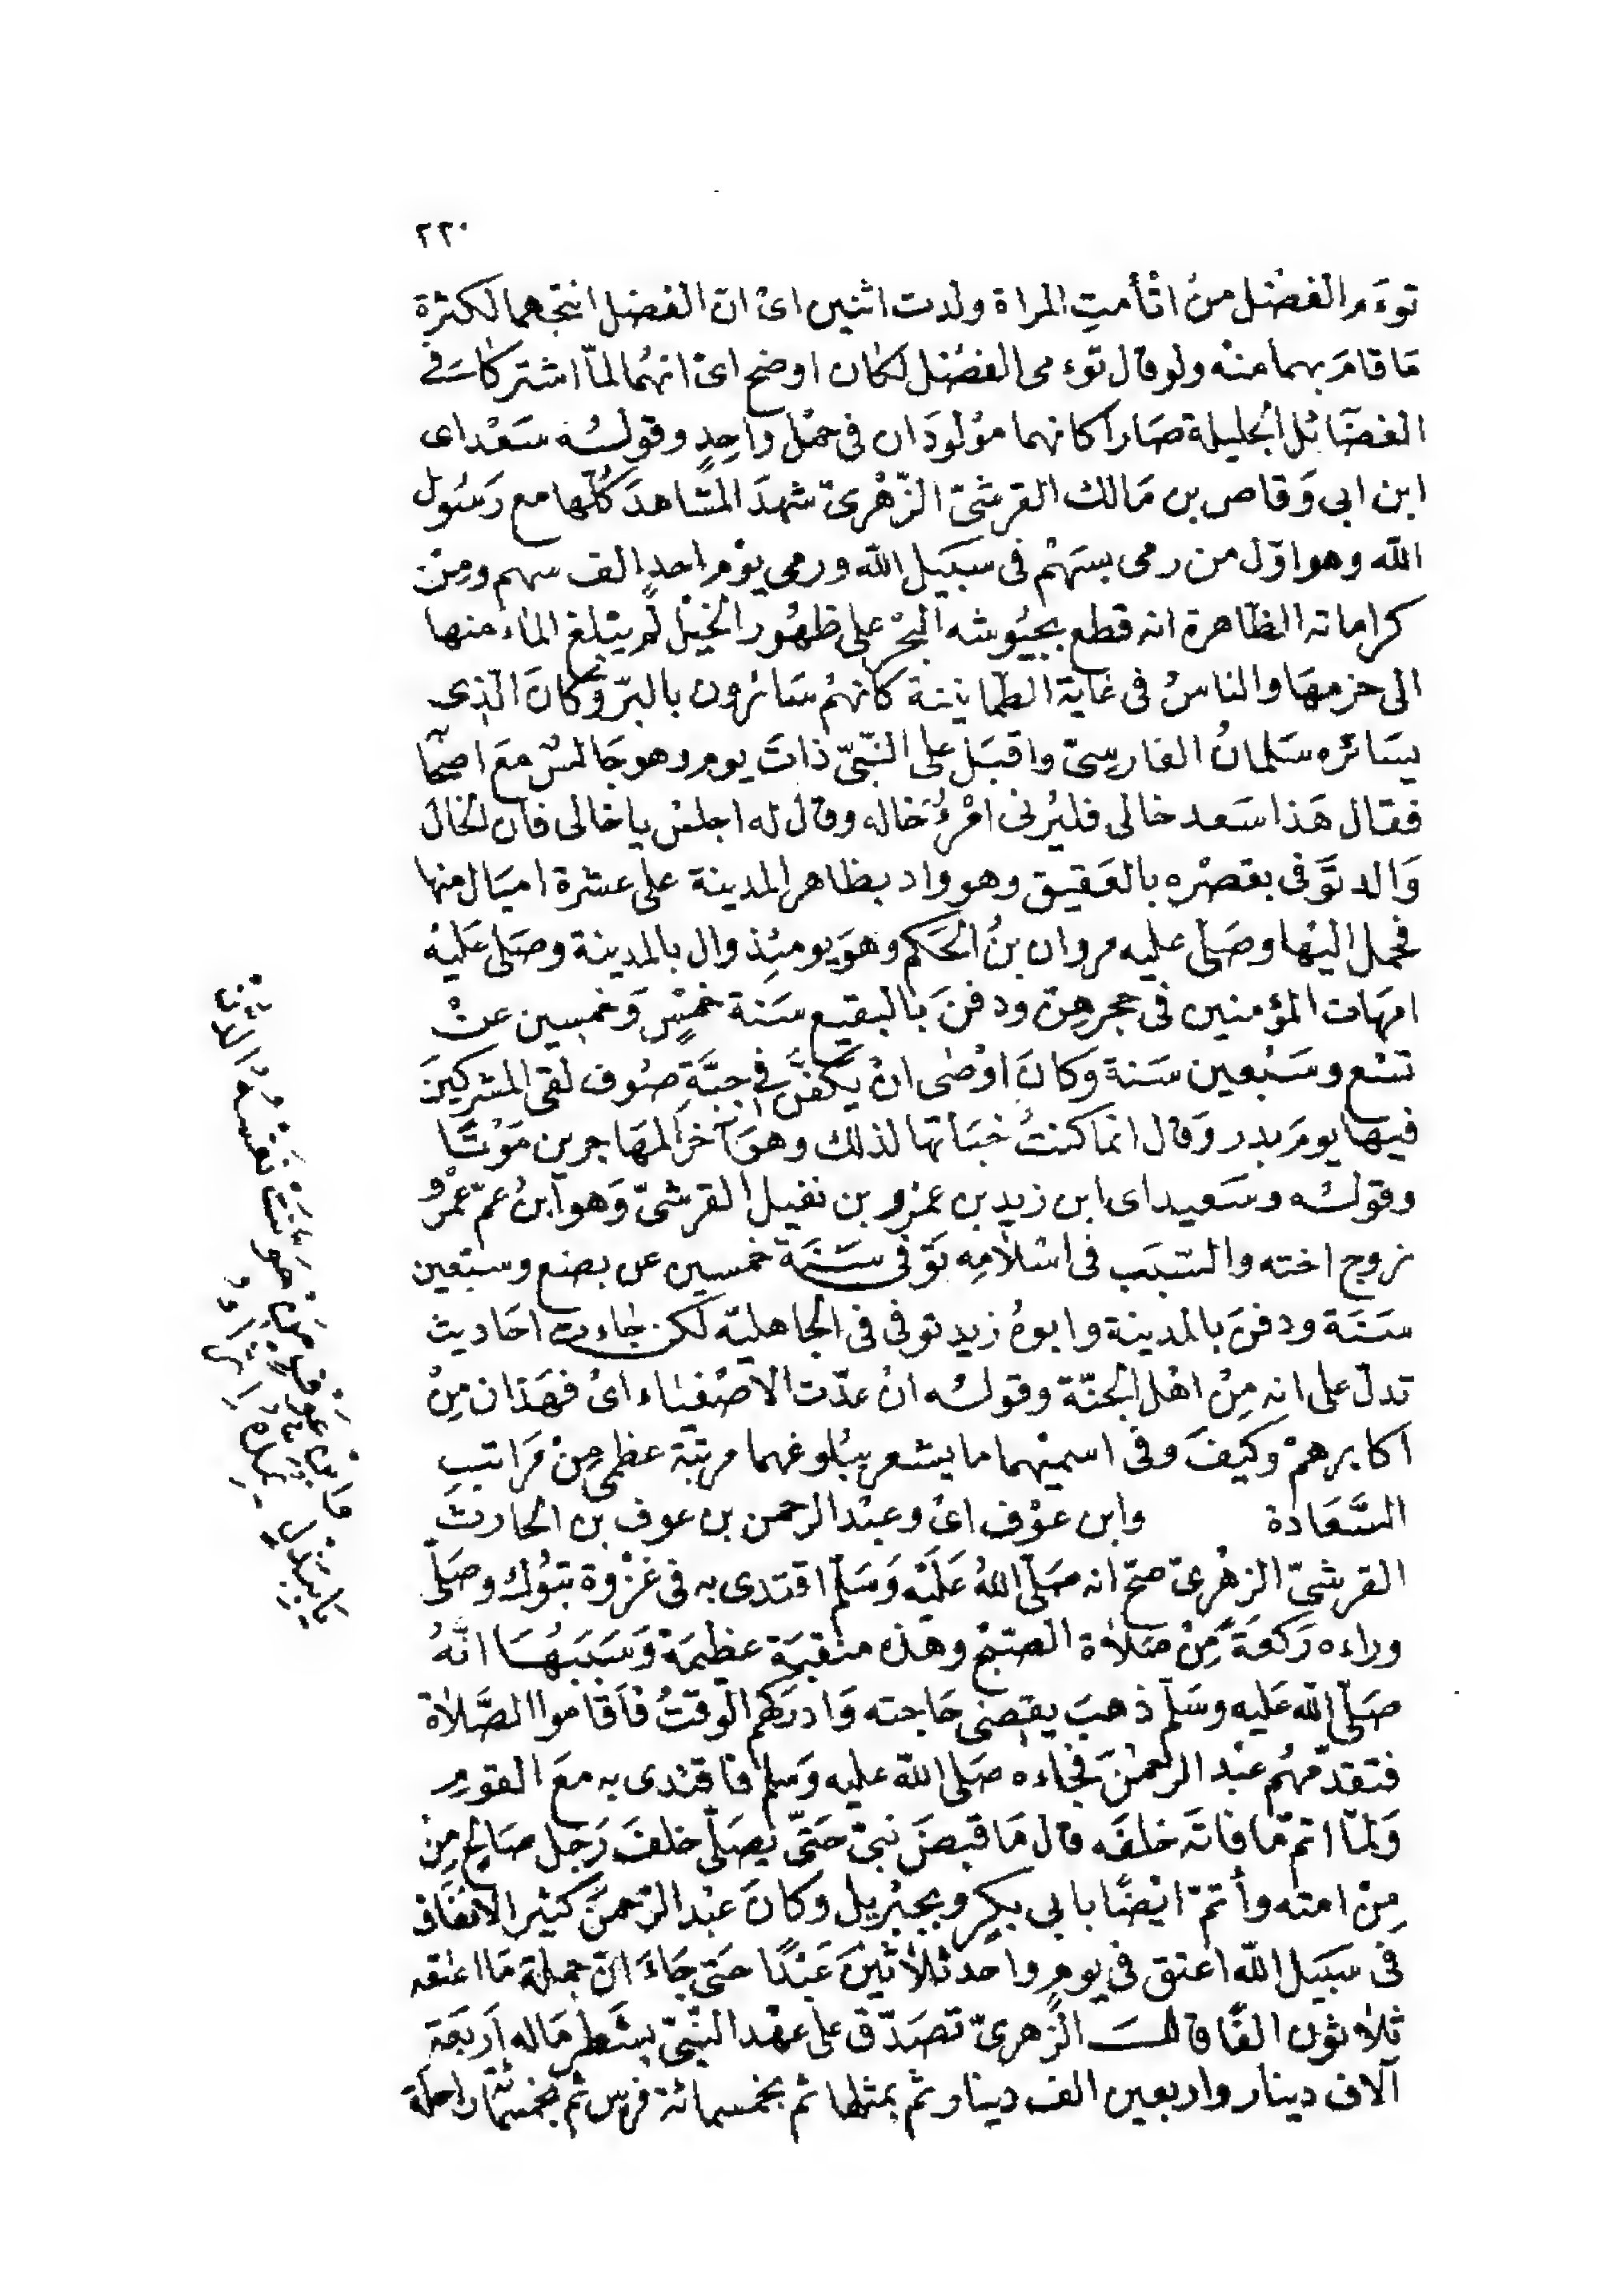 ٢٢٠
توءم الفضل من اتأمت المراة ولدت اثنين اى ان الفضل انتجهما لكثرة
ما قام بهما منه ولو قال توءمى الفضل لكان اوضح اى انهما لما اشتركا فى
الفضائل الجليلة صارا كانهما مولودان فى حمل واحد وقوله سعد اى
ابن ابى وقاص بن مالك القرشى الزهرى شهد المشاهد كلها مع رسول
الله وهو اول من رمى بسهم فى سبيل الله ورمى يوم احد الف سهم ومن
كراماته الظاهرة انه قطع بجيوشه البحر على ظهور الخيل لم يبلغ الماء منها
الى حزمها والناس فى غاية الطمانينة كانهم سائرون بالبر وكان الذى
يسائره سلمان الفارسى واقبل على النبى ذات يوم وهو جالس مع اصحا
فقال هذا سعد خالى فليرنى امرؤ خاله وقال له اجلس يا خالى فان الخال
والد توفى بقصره بالعقيق وهو واد بظاهر المدينة على عشرة اميال منها
فحمل اليها وصلى عليه مروان بن الحكم وهو يومئذ وال بالمدينة وصلى عليه
امهات المؤمنين فى حجرهن ودفن بالبقيع سنة خمس وخمسين عن
تسع وسبعين سنة وكان اوصى ان يكفن فى جبة صوف لقى المشركين
فيها يوم بدر وقال انما كنت خباتها لذلك وهو آخر المهاجرين موتا
وقوله وسعيد اى ابن زيد بن عمرو بن نفيل القرشى وهو ابن عم عمر و
زوج اخته والسبب فى اسلامه توفى سنة خمسين عن بضع وسبعين
سنة ودفن بالمدينة وابوه زيد توفى فى الجاهلية لكن جاءت احاديث
تدل على انه من اهل الجنة وقوله ان عدت الاصفياء اى فهذان من
اكابرهم وكيف وفى اسميهما ما يشعر ببلوغهما مرتبة عظمى من مراتب
السعادة وابن عوف اى وعبد الرحمن بن عوف بن الحارث
القرشى الزهرى صح انه صلى الله عليه وسلم اقتدى به فى غزوة تبوك وصلى
وراءه ركعة من صلاة الصبح وهذه منقبة عظيمة وسببها انه
صلى الله عليه وسلم ذهب يقضى حاجته وادركهم الوقت فاقاموا الصلاة
فتقدمهم عبد الرحمن فجاءه صلى الله عليه وسلم فاقتدى به مع القوم
ولما اتم ما فاته خلفه قال ما قبض نبى حتى يصلى خلف رجل صالح من
من امته وأتم ايضا بابى بكر وبجبريل وكان عبد الرحمن كثير الانفاق
فى سبيل الله اعتق فى يوم واحد ثلاثين عبدا حتى جاء ان جملة ما اعتقه
ثلاثون الفا قال الزهرى تصدق على عهد النبى بشطر ماله اربعة
آلاف دينار واربعين الف دينار ثم بمثلها ثم بخمسمائة فرس ثم بخمسمائة راحلة
وابن عوف من هونت نفسه الدنيا
ببذل يمده اثراء